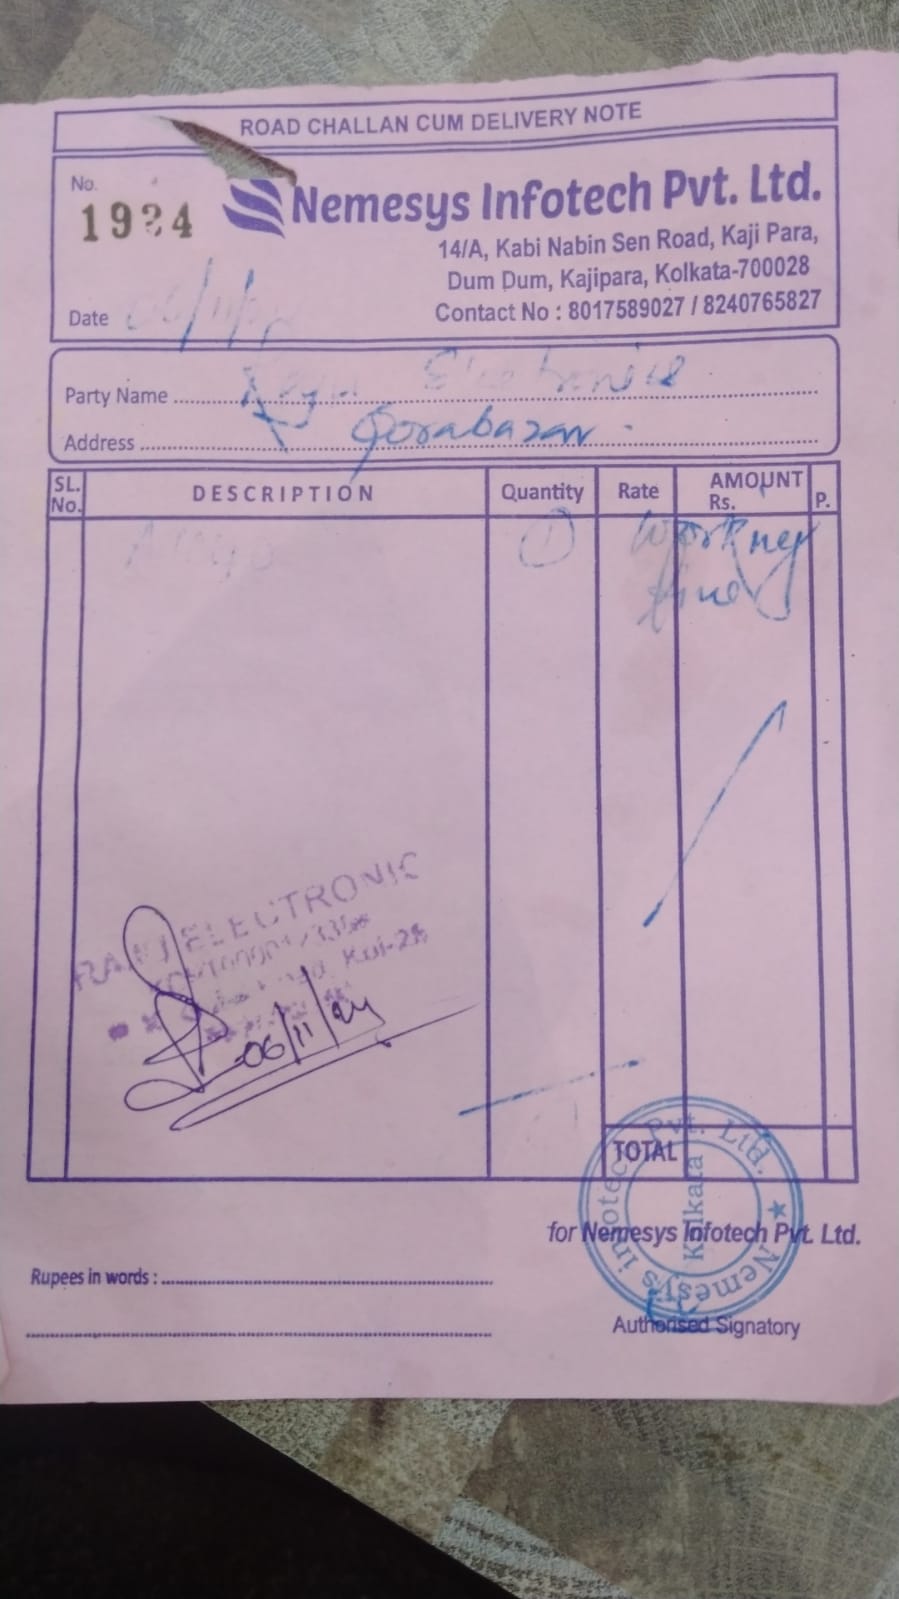 ROAD CHALLAN CUM DELIVERY NOTE
No.
1924
Nemesys Infotech Pvt. Ltd.
14/A, Kabi Nabin Sen Road, Kaji Para,
Dum Dum, Kajipara, Kolkata-700028
Contact No : 8017589027 / 8240765827
Date 06/11/24
Party Name Electronics
Address Gorabazar.
SL. No. DESCRIPTION Quantity Rate AMOUNT Rs. P.
1 Working
fine
ELECTRONIC
Kol-28
06/11/24
TOTAL
Nemesys Infotech Pvt. Ltd. ★ Kolkata
for Nemesys Infotech Pvt. Ltd.
Rupees in words :
Authorised Signatory